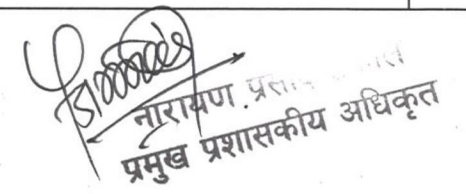 नारायण प्रसाद
प्रमुख प्रशासकीय अधिकृत